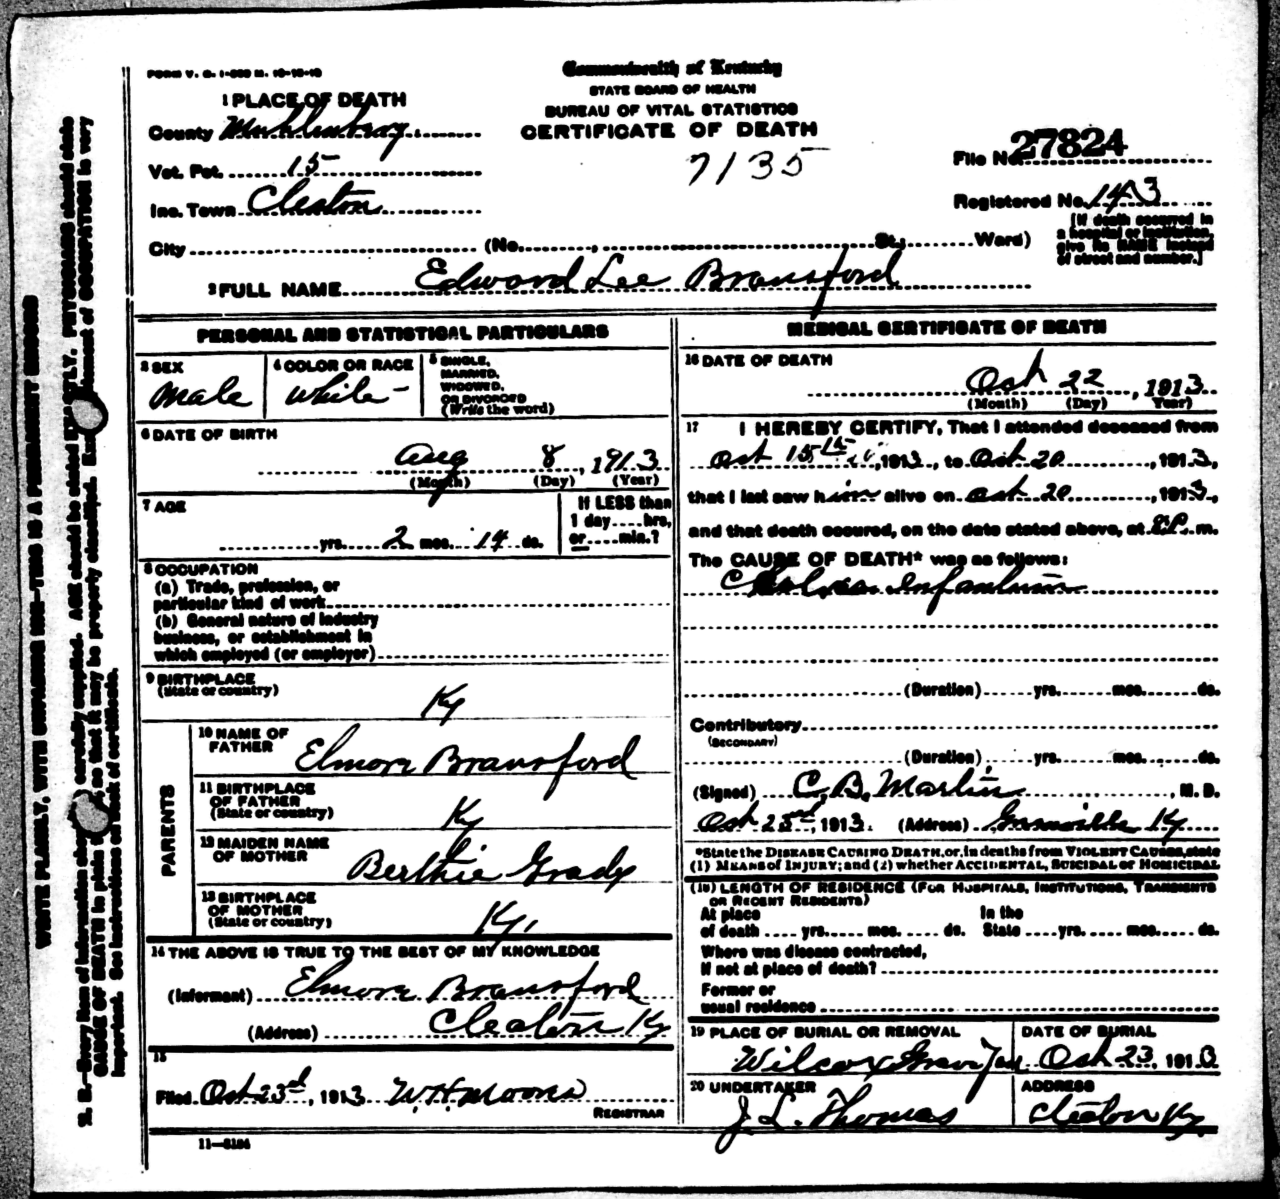 FORM V. S. 1-
Commonwealth of Kentucky
STATE BOARD OF HEALTH
BUREAU OF VITAL STATISTICS
CERTIFICATE OF DEATH
7135
1 PLACE OF DEATH
County Muhlenberg
Vot. Pct. 15
Inc. Town Cleaton
City (No. , St.; Ward)
File No. 27824
Registered No. 143
[If death occurred in
a hospital or institution,
give its NAME instead
of street and number.]
2 FULL NAME Edward Lee Bransford
PERSONAL AND STATISTICAL PARTICULARS
3 SEX
Male
4 COLOR OR RACE
White
5 SINGLE,
MARRIED,
WIDOWED,
OR DIVORCED
(Write the word)
6 DATE OF BIRTH
Aug 8, 1913
(Month) (Day) (Year)
7 AGE
yrs. 2 mos. 14 ds.
If LESS than
1 day hrs.
or min.?
8 OCCUPATION
(a) Trade, profession, or
particular kind of work
(b) General nature of industry
business, or establishment in
which employed (or employer)
9 BIRTHPLACE
(State or country)
Ky
PARENTS
10 NAME OF
FATHER
Elmore Bransford
11 BIRTHPLACE
OF FATHER
(State or country)
Ky
12 MAIDEN NAME
OF MOTHER
Berthie Grady
13 BIRTHPLACE
OF MOTHER
(State or country)
Ky.
14 THE ABOVE IS TRUE TO THE BEST OF MY KNOWLEDGE
(Informant) Elmore Bransford
(Address) Cleaton Ky
15
Filed Oct 23rd, 1913 W.H. Moore
REGISTRAR
MEDICAL CERTIFICATE OF DEATH
16 DATE OF DEATH
Oct 22, 1913
(Month) (Day) Year)
17 I HEREBY CERTIFY, That I attended deceased from
Oct 15th, 1913, to Oct 20, 1913,
that I last saw him alive on Oct 20, 1913,
and that death occured, on the date stated above, at P. m.
The CAUSE OF DEATH* was as follows:
Cholera Infantum
(Duration) yrs. mos. ds.
Contributory
(SECONDARY)
(Duration) yrs. mos. ds.
(Signed) C. B. Martin, M. D.
Oct 23rd, 1913. (Address) Greenville Ky
*State the DISEASE CAUSING DEATH, or, in deaths from VIOLENT CAUSES, state
(1) MEANS OF INJURY; and (2) whether ACCIDENTAL, SUICIDAL or HOMICIDAL
(18) LENGTH OF RESIDENCE (FOR HOSPITALS, INSTITUTIONS, TRANSIENTS
OR RECENT RESIDENTS)
At place In the
of death yrs. mos. ds. State yrs. mos. ds.
Where was disease contracted,
If not at place of death?
Former or
usual residence
19 PLACE OF BURIAL OR REMOVAL
Wilcox Grave Yard
DATE OF BURIAL
Oct 23, 1913
20 UNDERTAKER
J. L. Thomas
ADDRESS
Cleaton Ky.
WRITE PLAINLY, WITH UNFADING INK—THIS IS A PERMANENT RECORD
N. B.—Every item of information carefully supplied. AGE should be stated EXACTLY. PHYSICIANS should state
CAUSE OF DEATH in plain so that it may be properly classified. statement of OCCUPATION is very
important. See instructions on back of certificate.